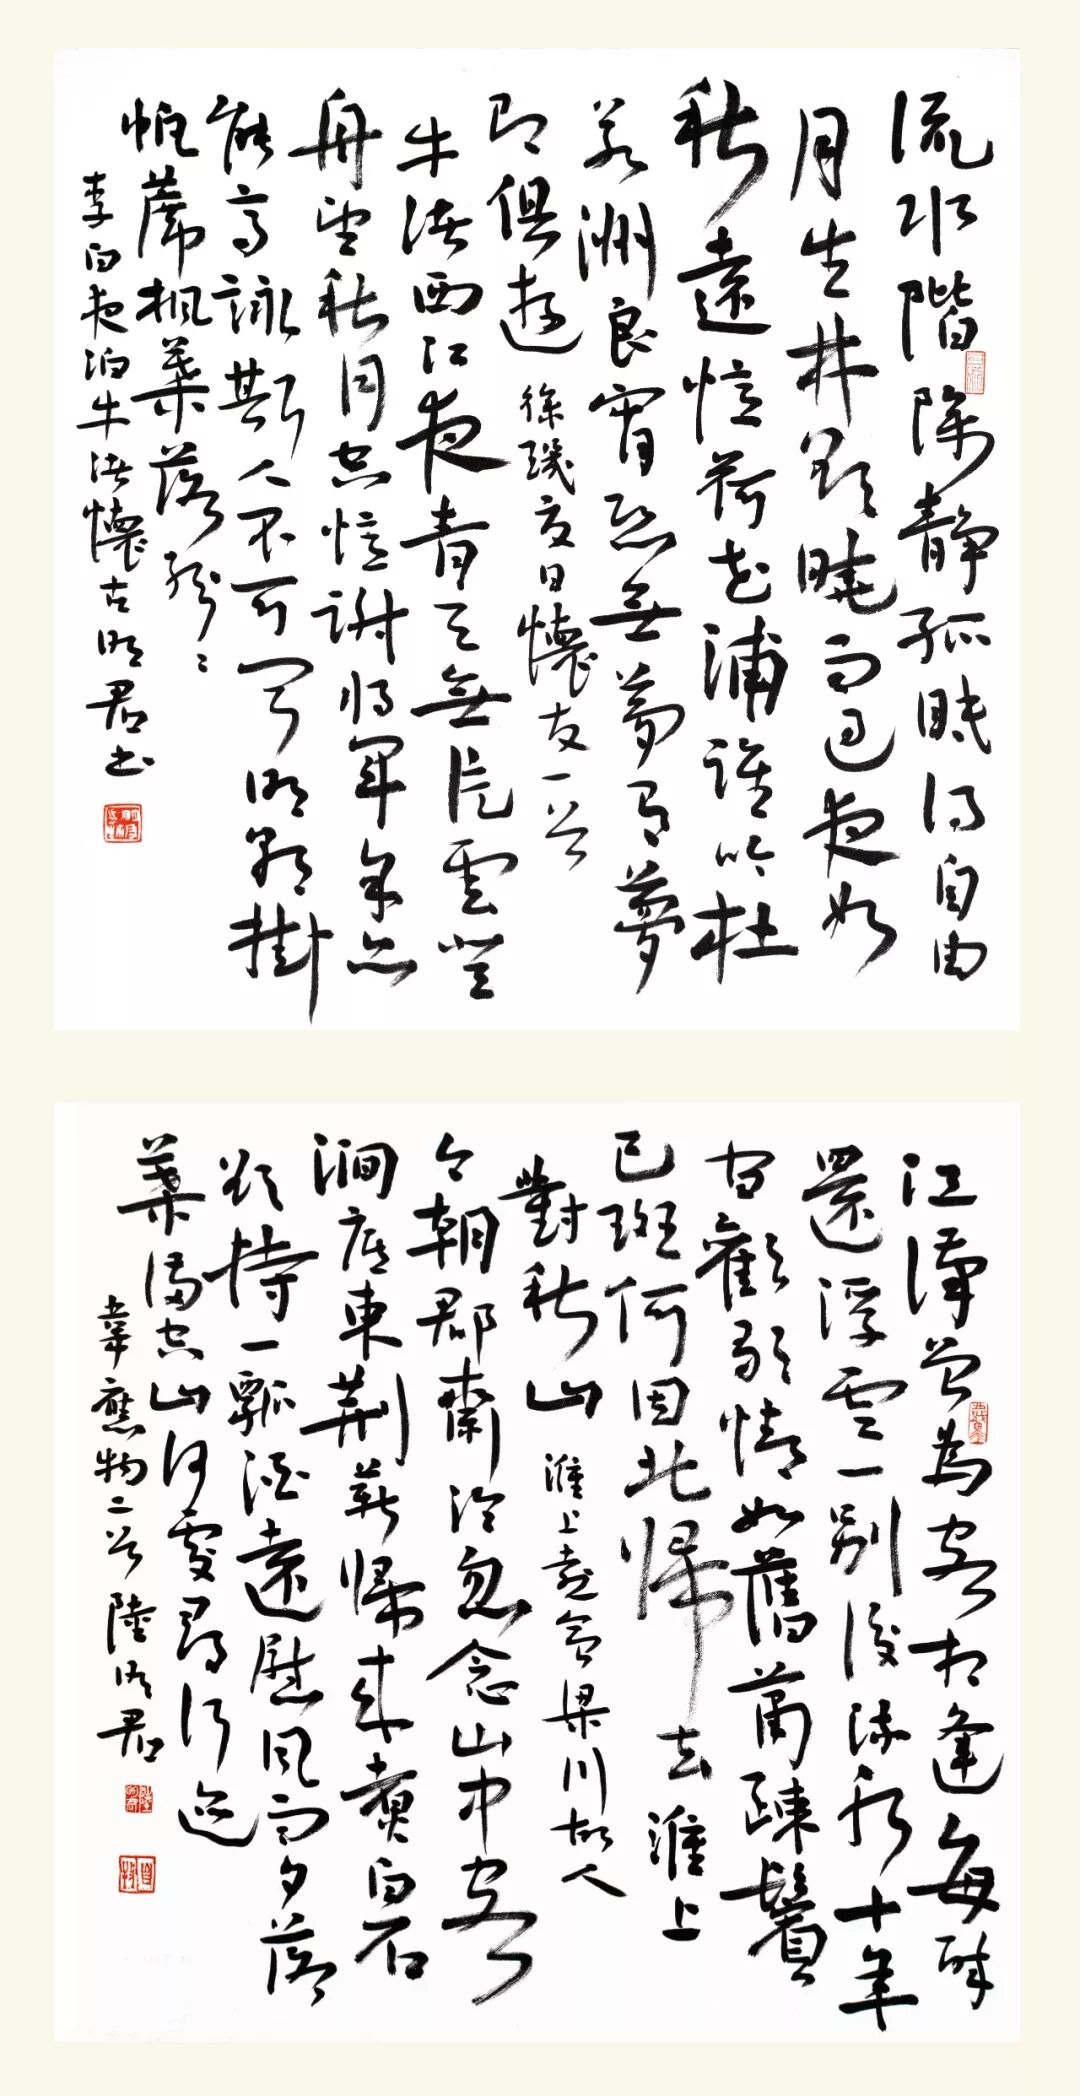 流水階除静孤眠得自由
月生林欲曉雨過夜如
秋遠憶荷花浦誰吟杜
若洲良宵恐無夢有夢
即俱遊 徐璣夏日懷友一首
牛渚西江夜青天無片雲登
舟望秋月空憶謝將軍余亦
能高詠斯人不可聞明朝掛
帆席楓葉落紛〻
李白夜泊牛渚懷古明君書
江漢曾為客相逢每醉
還浮雲一别後流水十年
間歡笑情如舊蕭疎鬢
已斑何因北歸去淮上
對秋山 淮上喜會梁川故人
今朝郡齋冷忽念山中客
澗底束荆薪歸來煮白石
欲持一瓢酒遠慰風雨夕落
葉滿空山何處尋行迹
韋應物二首陸明君